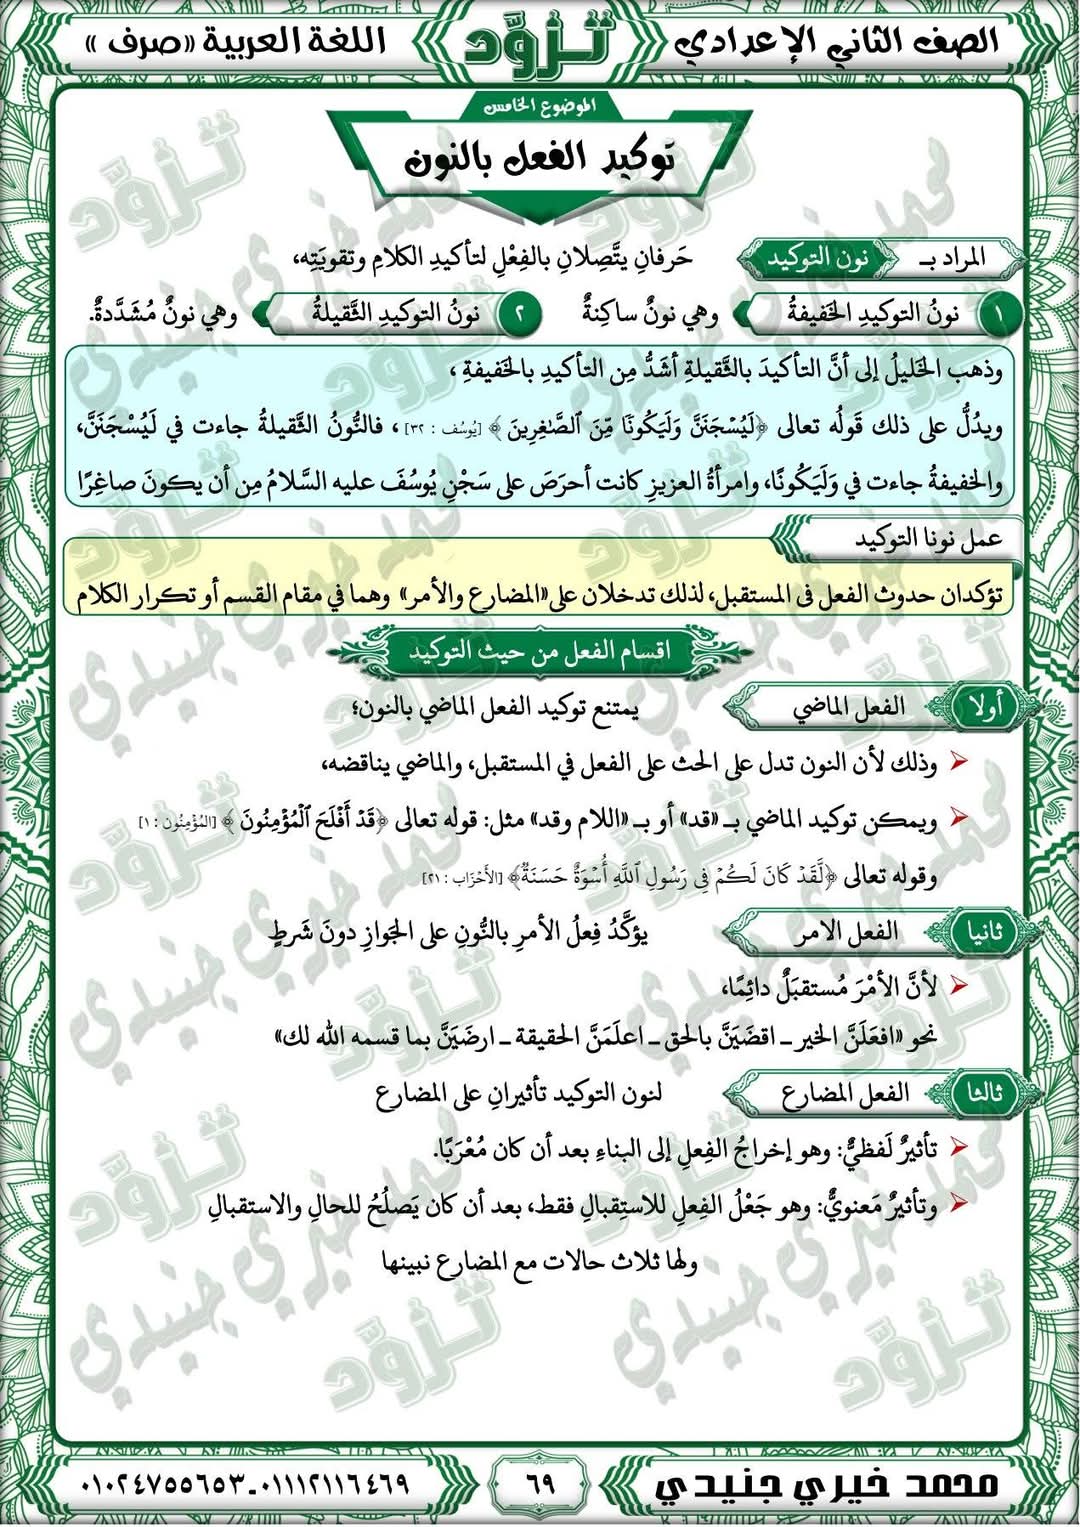 الصف الثاني الإعدادي
تزوَّد
اللغة العربية «صرف»
الموضوع الخامس
توكيد الفعل بالنون
المراد بـ نون التوكيد حَرفانِ يتَّصِلانِ بالفِعْلِ لتأكيدِ الكلامِ وتقويَتِه،
١ نونُ التوكيدِ الخَفيفةُ وهي نونٌ ساكِنةٌ ٢ نونُ التوكيدِ الثَّقيلةُ وهي نونٌ مُشَدَّدةٌ.
وذهب الخَليلُ إلى أنَّ التأكيدَ بالثَّقيلةِ أشَدُّ مِن التأكيدِ بالخَفيفةِ ،
ويدُلُّ على ذلك قَولُه تعالى ﴿لَيُسْجَنَنَّ وَلَيَكُونًا مِّنَ ٱلصَّٰغِرِينَ ﴾ [يُوسُف : ٣٢] ، فالنُّونُ الثَّقيلةُ جاءت في لَيُسْجَنَنَّ،
والخفيفةُ جاءت في وَلَيَكُونًا، وامرأةُ العزيزِ كانت أحرَصَ على سَجْنِ يُوسُفَ عليه السَّلامُ مِن أن يكونَ صاغِرًا
عمل نونا التوكيد
تؤكدان حدوث الفعل فى المستقبل، لذلك تدخلان على «المضارع والأمر» وهما في مقام القسم أو تكرار الكلام
اقسام الفعل من حيث التوكيد
أولا الفعل الماضي يمتنع توكيد الفعل الماضي بالنون؛
وذلك لأن النون تدل على الحث على الفعل في المستقبل، والماضي يناقضه،
ويمكن توكيد الماضي بـ «قد» أو بـ «اللام وقد» مثل: قوله تعالى ﴿قَدْ أَفْلَحَ ٱلْمُؤْمِنُونَ ﴾ [المُؤْمِنُون : ١]
وقوله تعالى ﴿لَّقَدْ كَانَ لَكُمْ فِى رَسُولِ ٱللَّهِ أُسْوَةٌ حَسَنَةٌ﴾ [الأَحْزَاب : ٢١]
ثانيا الفعل الامر يؤكَّدُ فِعلُ الأمرِ بالنُّونِ على الجَوازِ دونَ شَرطٍ
لأنَّ الأمْرَ مُستقبَلٌ دائِمًا،
نحو «افعَلَنَّ الخير ـ اقضَيَنَّ بالحق ـ اعلَمَنَّ الحقيقة ـ ارضَيَنَّ بما قسمه الله لك»
ثالثا الفعل المضارع لنون التوكيد تأثيرانِ على المضارع
تأثيرٌ لَفظيٌّ: وهو إخراجُ الفِعلِ إلى البناءِ بعد أن كان مُعْرَبًا.
وتأثيرٌ مَعنويٌّ: وهو جَعْلُ الفِعلِ للاستِقبالِ فقط، بعد أن كان يَصلُحُ للحالِ والاستقبالِ
ولها ثلاث حالات مع المضارع نبينها
محمد خيري جنيدي
٦٩
٠١١١٢١١٦٤٦٩ـ٠١٠٢٤٧٥٥٦٥٣